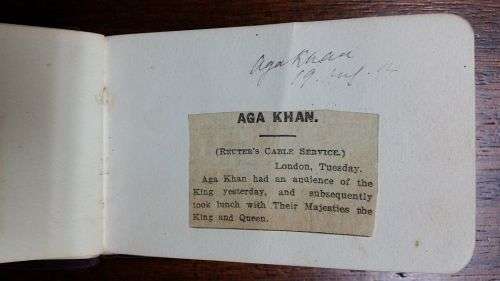 Aga Khan
19. Aug. 14
AGA KHAN.
(REUTER'S CABLE SERVICE.)
London, Tuesday.
Aga Khan had an audience of the
King yesterday, and subsequently
took lunch with Their Majesties the
King and Queen.